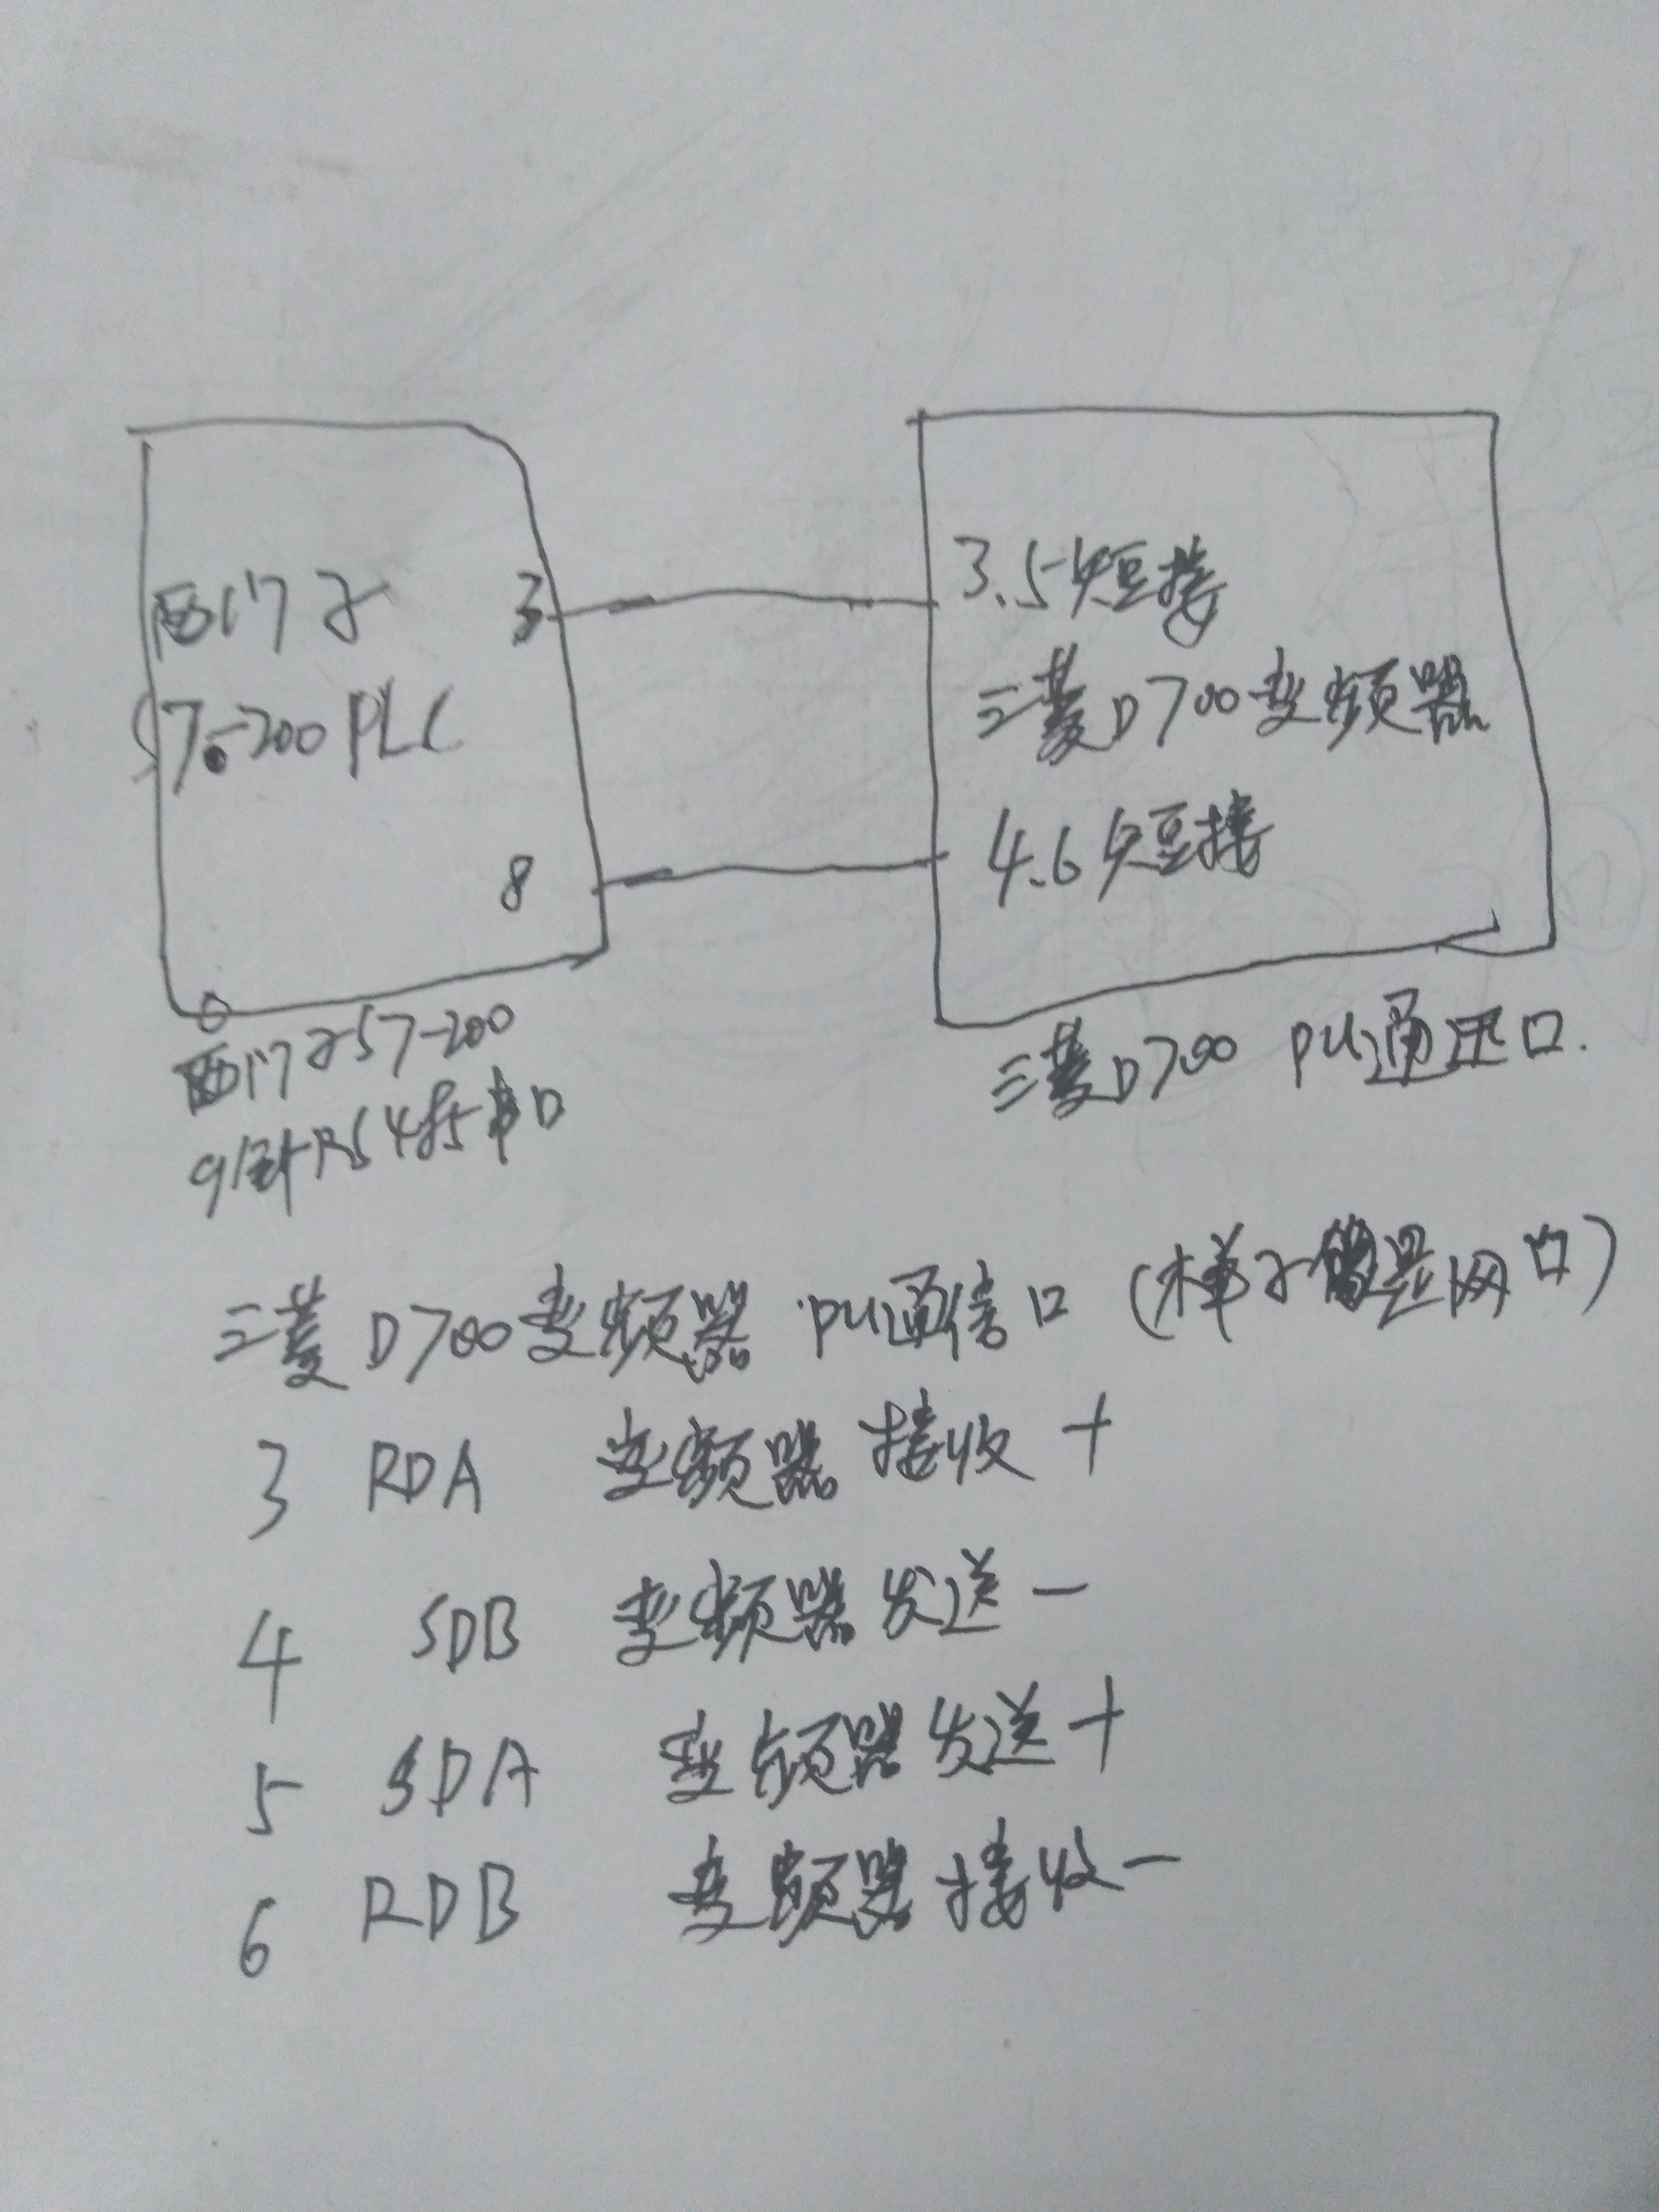 西门子 3
S7-200 PLC
8
3.5短接
三菱D700变频器
4.6短接
西门子S7-200
9针RS485串口
三菱D700 PU通讯口.
三菱D700变频器 PU通信口(样子像是网口)
3 RDA 变频器 接收+
4 SDB 变频器 发送-
5 SDA 变频器 发送+
6 RDB 变频器 接收-